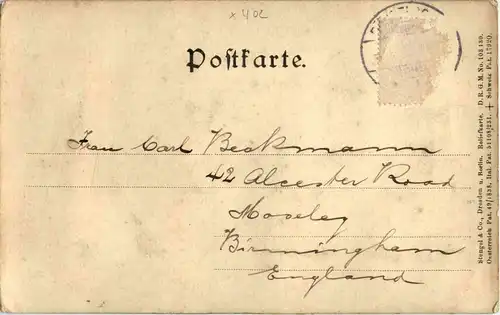 x 40c
Postkarte.
Frau Carl Beckmann
42 Alcester Road
Moseley
Birmingham
England
Stengel & Co., Dresden u. Berlin. Reliefkarte. D. R. G. M. No. 103189.
Oesterreich Pat. 49/4838, Ital. Pat. 55109/231. + Schweiz Pat. 17920.